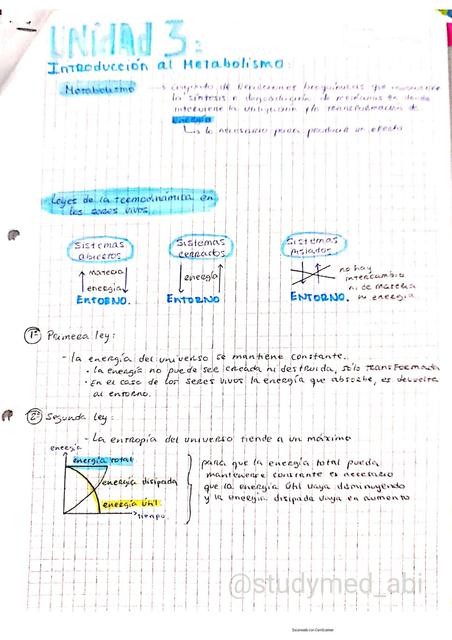 UNIDAD 3:
Introducción al Metabolismo:
Metabolismo → conjunto de reacciones bioquímicas que
la síntesis o degradación de moléculas en donde
interviene la utilización y/o transformación de
energía
↳ lo necesario para producir un efecto
Leyes de la termodinámica en
los seres vivos
Sistemas
abiertos
materia
energía
ENTORNO.
Sistemas
cerrados
energía
ENTORNO
Sistemas
Aislados
no hay
intercambio
ni de materia
ni energía
ENTORNO.
1º Primera ley:
- la energía del universo se mantiene constante.
• la energía no puede ser creada ni destruida, sólo transformada
• En el caso de los seres vivos la energía que absorbe, es devuelta
al entorno.
2º Segunda ley:
- La entropía del universo tiende a un máximo
energía
energía total
energía disipada
energía útil
tiempo.
para que la energía total pueda
mantenerse constante es necesario
que la energía útil vaya disminuyendo
y la energía disipada vaya en aumento
@studymed_abi
Escaneado con CamScanner